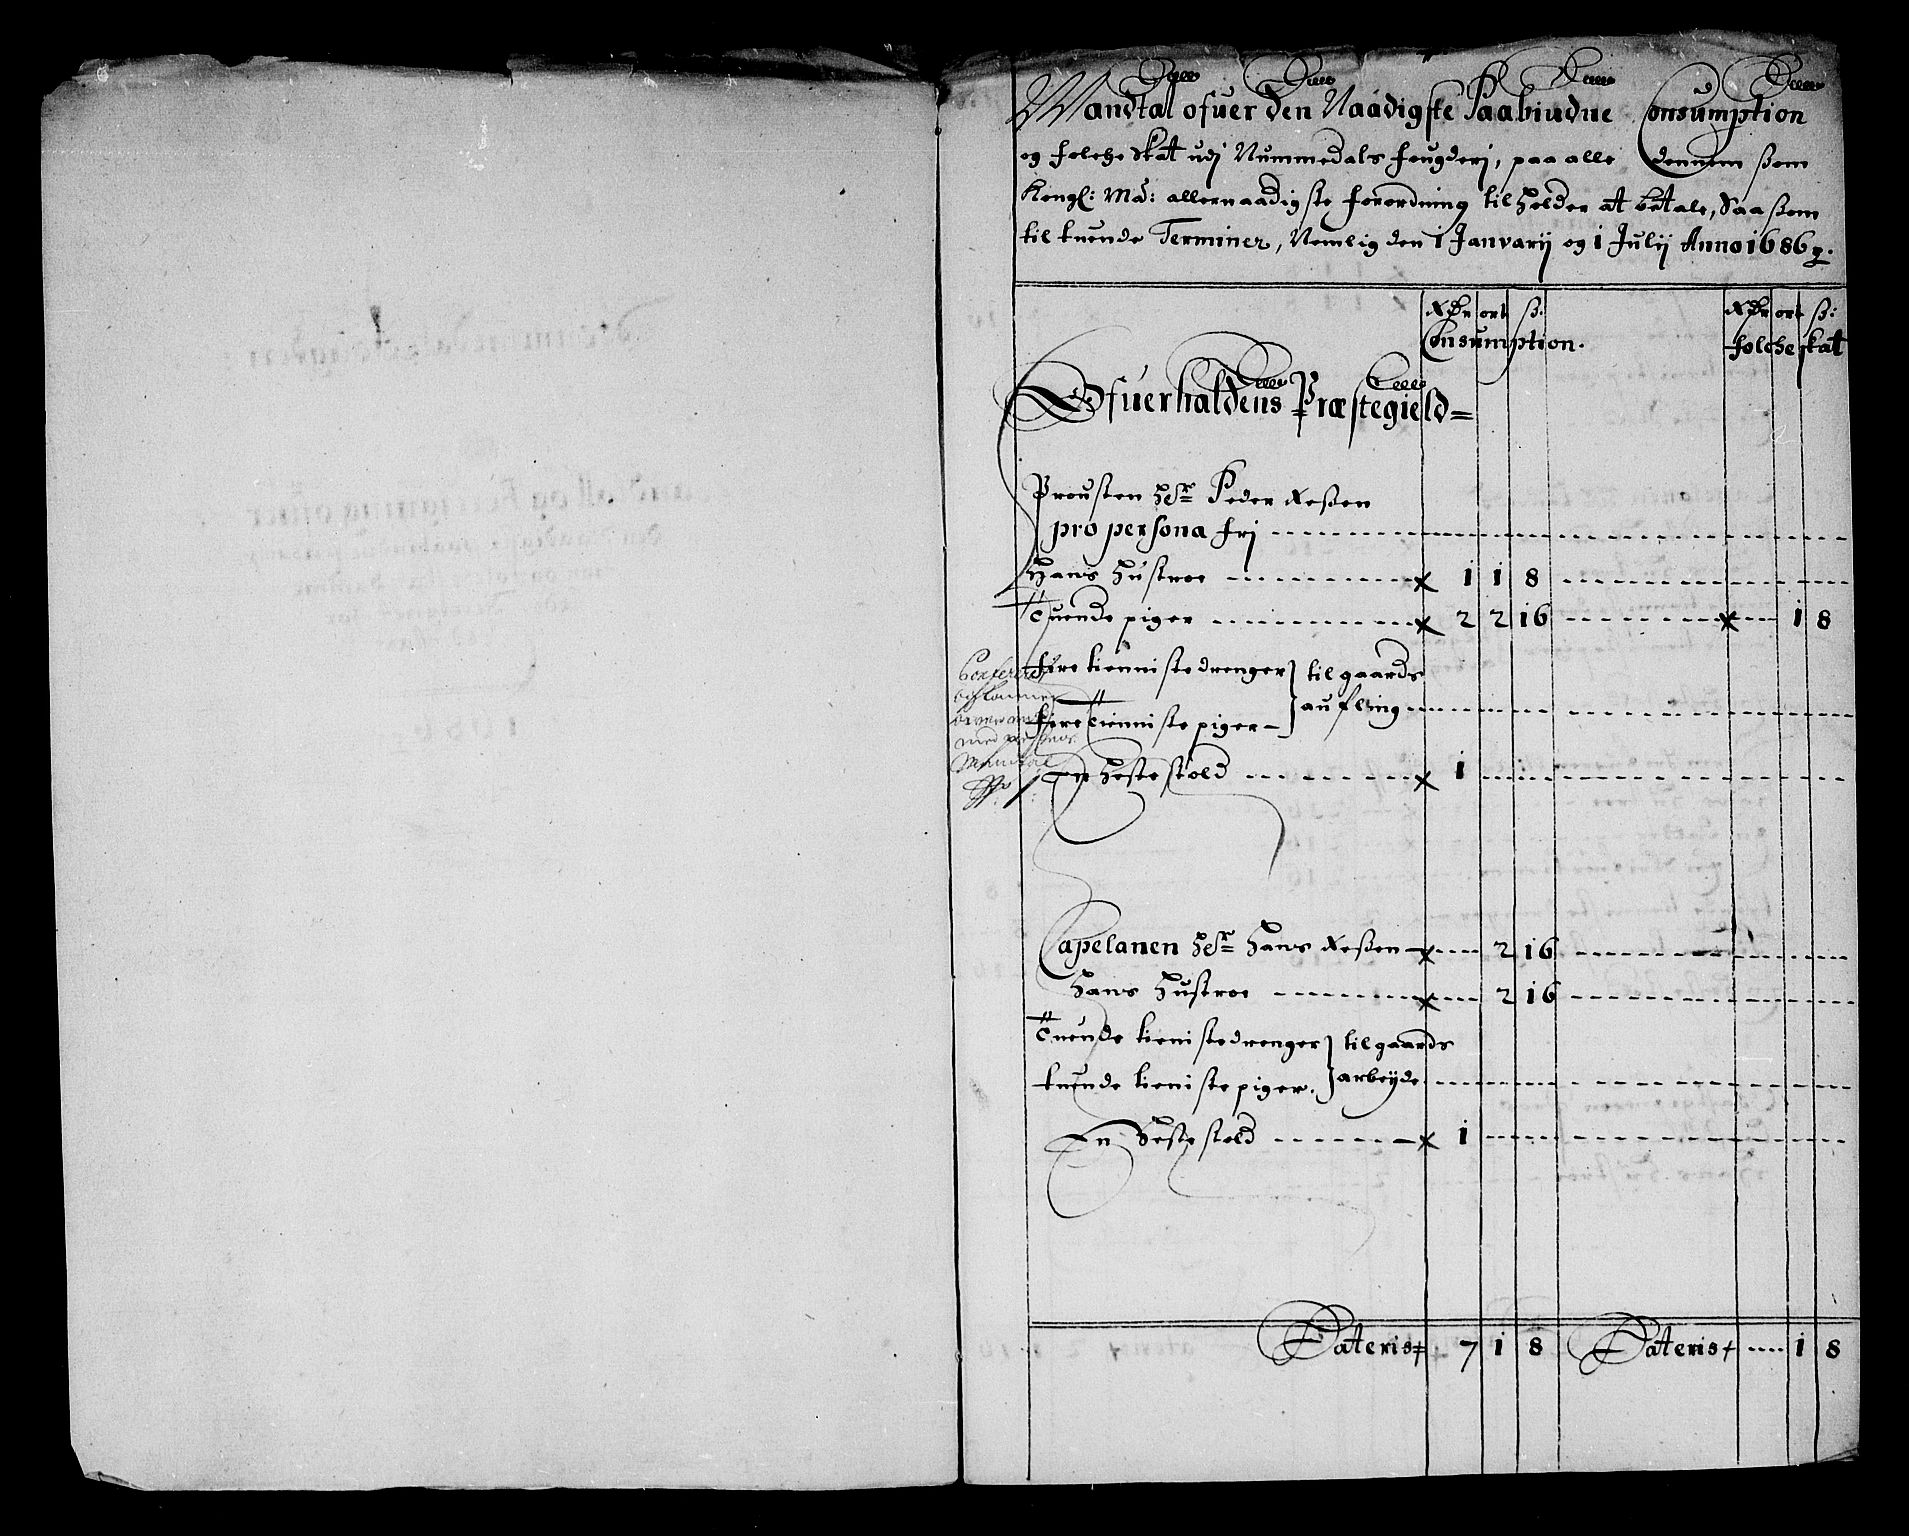 Mandtal ofuer den Naadigste Paabiudne Consumption
og folche skat udj Nummedals fougderj, paa alle dennem ßom
Kongl: Maj: allernaadigste forordning tilholder at betale, Saa ßom
til tuende Terminer, Nemlig den 1 Janvarij og 1 Julij Anno 1686
Rdr ort ß: Rdr ort ß:
Consumption. folche skat
Ofuerhaldens Præstegield
Prousten hr Peder Neßen
pro persona frj
Hans Hustroe 1 1 8
Tuende piger 2 2 16 1 8
fire tienniste drenger } til gaards
fire tienniste piger } aufling
En hestestold 1
Capelanen hr Hans Neßen 2 16
Hans Hustroe 2 16
Tuende tienistedrenger } til gaards
tuende tieniste piger. } arbeyde
En Hestestold 1
Lateris 7 1 8 Lateris 1 8